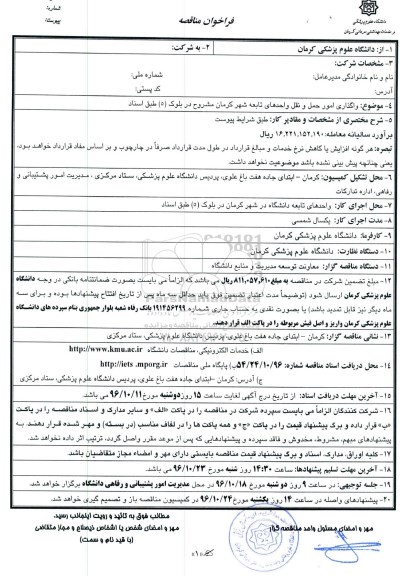 شماره:
پیوست:
فراخوان مناقصه
دانشگاه علوم پزشکی
و خدمات بهداشتی درمانی کرمان
۱- از: دانشگاه علوم پزشکی کرمان
۲- به شرکت:
۳- مشخصات شرکت:
نام و نام خانوادگی مدیرعامل: شماره ملی:
آدرس: کد پستی:
۴- موضوع: واگذاری امور حمل و نقل واحدهای تابعه شهر کرمان مشروح در بلوک (۵) طبق اسناد
۵- شرح مختصری از مشخصات و مقادیر کار: طبق شرایط پیوست
برآورد سالیانه معامله: ۱۶,۲۲۱,۱۵۲,۱۹۰ ریال
تبصره: هر گونه افزایش یا کاهش نرخ خدمات و مبالغ قرارداد در طول مدت قرارداد صرفاً در چارچوب و بر اساس مفاد قرارداد خواهد بود.
یعنی چنانچه پیش بینی نشده باشد موضوعیت نخواهد داشت.
۶- محل تشکیل کمیسیون: کرمان – ابتدای جاده هفت باغ علوی، پردیس دانشگاه علوم پزشکی، ستاد مرکزی ، مدیریت امور پشتیبانی و
رفاهی، اداره تدارکات
۷- محل اجرای کار: واحدهای تابعه دانشگاه در شهر کرمان در بلوک (۵) طبق اسناد
۸- مدت اجرای کار: یکسال شمسی
۹- کارفرما: دانشگاه علوم پزشکی کرمان
۱۰- دستگاه نظارت: دانشگاه علوم پزشکی کرمان
۱۱- دستگاه مناقصه گزار: معاونت توسعه مدیریت و منابع دانشگاه
۱۲- مبلغ تضمین شرکت در مناقصه به مبلغ ۸۱۱,۰۵۷,۶۱۰ ریال می باشد که الزاماً می بایست بصورت ضمانتنامه بانکی در وجه دانشگاه
علوم پزشکی کرمان ارسال شود (توضیحاً مدت اعتبار تضمین فوق باید حداقل سه ماه پس از تاریخ افتتاح پیشنهادها بوده و برای سه
ماه دیگر نیز قابل تمدید باشد) یا بصورت نقدی به حساب جاری شماره ۱۹۱۴۵۶۲۹۹ بانک رفاه شعبه بلوار جمهوری بنام سپرده های دانشگاه
علوم پزشکی کرمان واریز و اصل فیش مربوطه را در پاکت الف قرار دهند.
۱۳- نشانی مناقصه گزار: کرمان – ابتدای جاده هفت باغ علوی، پردیس دانشگاه علوم پزشکی، ستاد مرکزی
۱۴- محل دریافت اسناد مناقصه شماره: ۵۴/۲۴/۱۰/۹۶
الف) خدمات الکترونیکی، مناقصات دانشگاه http://www.kmu.ac.ir
ب) پایگاه ملی مناقصات http://iets.mporg.ir
ج) آدرس: کرمان –ابتدای جاده هفت باغ علوی، پردیس دانشگاه علوم پزشکی، ستاد مرکزی
۱۵- آخرین مهلت دریافت اسناد: از تاریخ درج آگهی لغایت ساعت ۱۵ روز دوشنبه مورخ ۹۶/۱۰/۱۱ می باشد.
۱۶- شرکت کنندگان الزاماً می بایست سپرده شرکت در مناقصه را در پاکت «الف» و سایر مدارک و اسناد مناقصه را در پاکت
«ب» قرار داده و برگ پیشنهاد قیمت را در پاکت «ج» و همه پاکت ها را در لفاف مناسب (در بسته) و مهر شده قرار دهند. به
پیشنهادهای مبهم، مشروط، مخدوش و فاقد سپرده و پیشنهادهایی که پس از موعد مقرر واصل گردد، ترتیب اثر داده نخواهد شد.
۱۷- کلیه اوراق، مدارک، اسناد و برگ پیشنهاد قیمت مناقصه بایستی دارای مهر و امضاء مجاز متقاضیان باشد.
۱۸- آخرین مهلت تسلیم پیشنهادها: ساعت ۱۴:۳۰ روز شنبه مورخ ۹۶/۱۰/۲۳ می باشد.
۱۹- جلسه توجیهی: در ساعت ۹ روز دو شنبه مورخ ۹۶/۱۰/۱۸ در محل مدیریت امور پشتیبانی و رفاهی دانشگاه برگزار خواهد شد.
۲۰- پیشنهادهای واصله در ساعت ۱۴ روز یکشنبه مورخ ۹۶/۱۰/۲۴ در کمیسیون مناقصه باز و تصمیم گیری خواهد شد.
مطالب فوق به تائید و رویت اینجانب رسید.
مهر و امضای شخص یا اشخاص ذیصلاح و مجاز متقاضی
(با قید نام و سمت)
مهر و امضای مسئول واحد مناقصه گزار